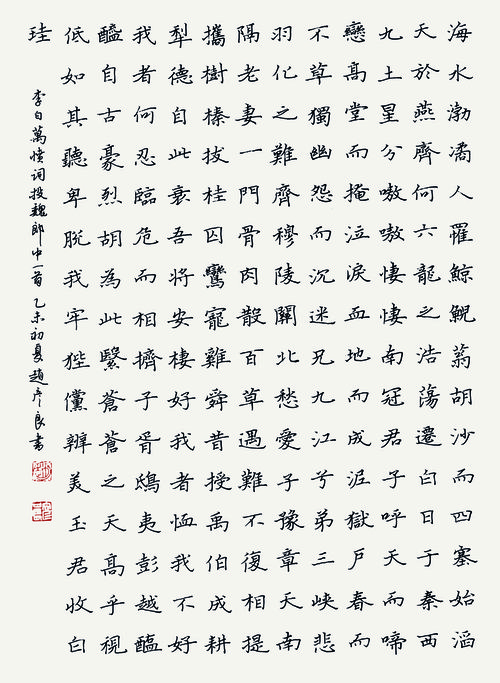 海水渤潏人罹鯨鯢蓊胡沙而四塞始滔
天於燕齊何六龍之浩蕩遷白日于秦西
九土星分嗷嗷悽悽南冠君子呼天而啼
戀高堂而掩泣淚血地而成泥獄戶春而
不草獨幽怨而沉迷兄九江兮弟三峽悲
羽化之難齊穆陵關北愁愛子豫章天南
隔老妻一門骨肉散百草遇難不復相提
攜樹榛拔桂囚鸞寵雞舜昔授禹伯成耕
犁德自此衰吾將安棲好我者恤我不好
我者何忍臨危而相擠子胥鴟夷彭越醢
醯自古豪烈胡為此繄蒼蒼之天高乎視
低如其聽卑脫我牢狴儻辨美玉君收白
珪
李白萬憤詞投魏郎中一首乙未初夏趙彥良書